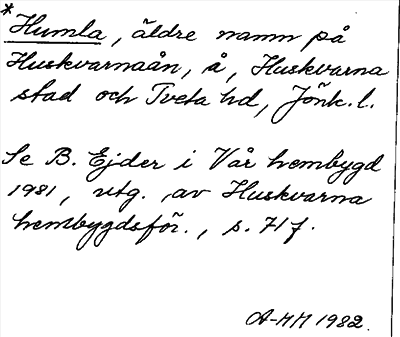 *Humla, äldre namn på
Huskvarnaån, å, Huskvarna
stad och Tveta hd, Jönk. l.
Se B. Ejder i Vår hembygd
1981, utg. av Huskvarna
hembygdsför., s. 71 f.
A-MM 1982.